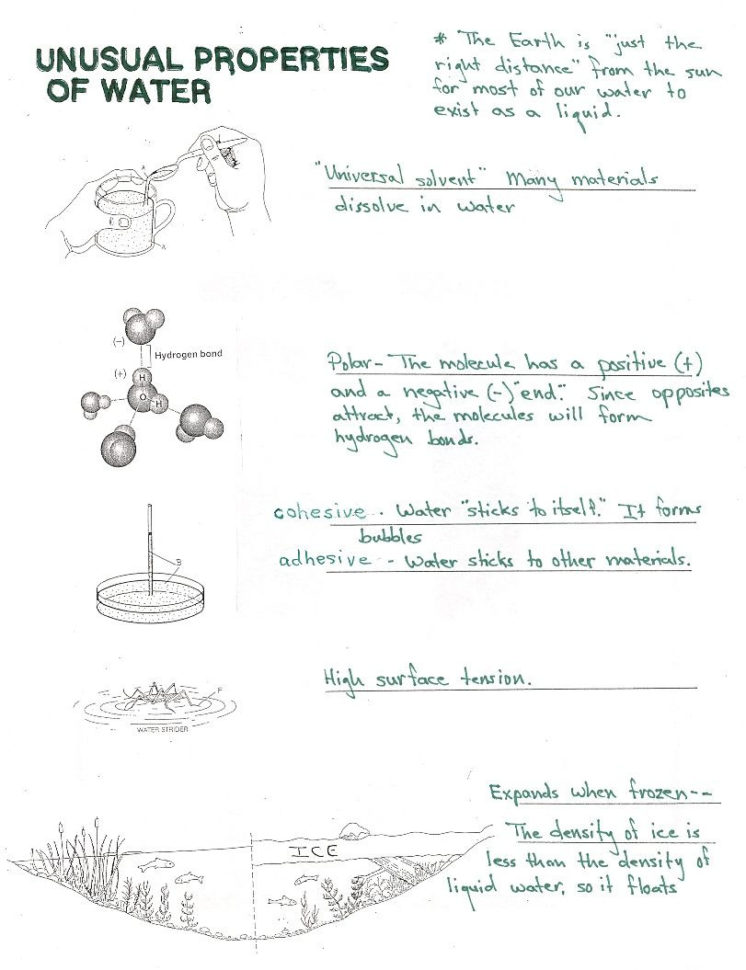 UNUSUAL PROPERTIES
OF WATER
* The Earth is "just the
right distance" from the sun
for most of our water to
exist as a liquid.
"Universal solvent" Many materials
dissolve in water
A
A
(-)
Hydrogen bond
(+)
H
O
H
Polar - The molecule has a positive (+)
and a negative (-) "end." Since opposites
attract, the molecules will form
hydrogen bonds.
cohesive - Water "sticks to itself." It forms
bubbles
adhesive - Water sticks to other materials.
B
High surface tension.
F
WATER STRIDER
Expands when frozen--
The density of ice is
less than the density of
liquid water, so it floats
ICE